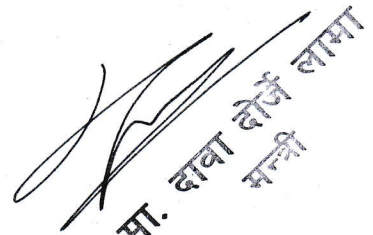 मा. दावा दोर्जे लामा
मन्त्री